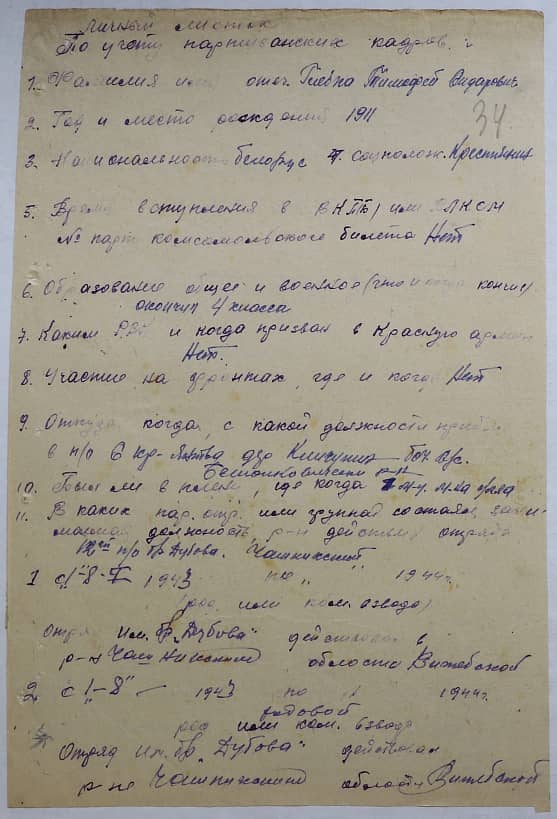 личный листок
По учету партизанских кадров.
1. Фамилия имя отеч. Глебка Тимофей Сидарович
34
2. Год и место рождений 1911
3. Национальность белорус 4. соцполож. Крестьянин
5. Время вступления в ВКПБ) или ВЛКСМ
№ парт комсомольского билета Нет
6. Образование общее и военное (что и когда кончил)
окончил 4 класса
7. Каким РВК и когда призван в Красную армию
Нет.
8. Участие на фронтах, где и когда Нет
9. Откуда, когда, с какой должности прибыл
в п/о б кр- дер
Бешенковичский р-н
10. Был ли в плену, где когда
11. В каких пар. отр. или группах состоял, зани-
маемая должность, р-н действия отряда
п/о бр. Дубова. Чашникский
1 с/-8- 1943 по " 1944 г.
(ряд. или ком. взвода)
Отряд им. бр. „Дубова" действовал в
р-н Чашникский области Витебской
2 с 1-8" — 1943 по " 1944 г.
рядовой
ряд или ком. взвода
Отряд им. бр. „Дубова" действовал
р-не Чашникский области Витебской